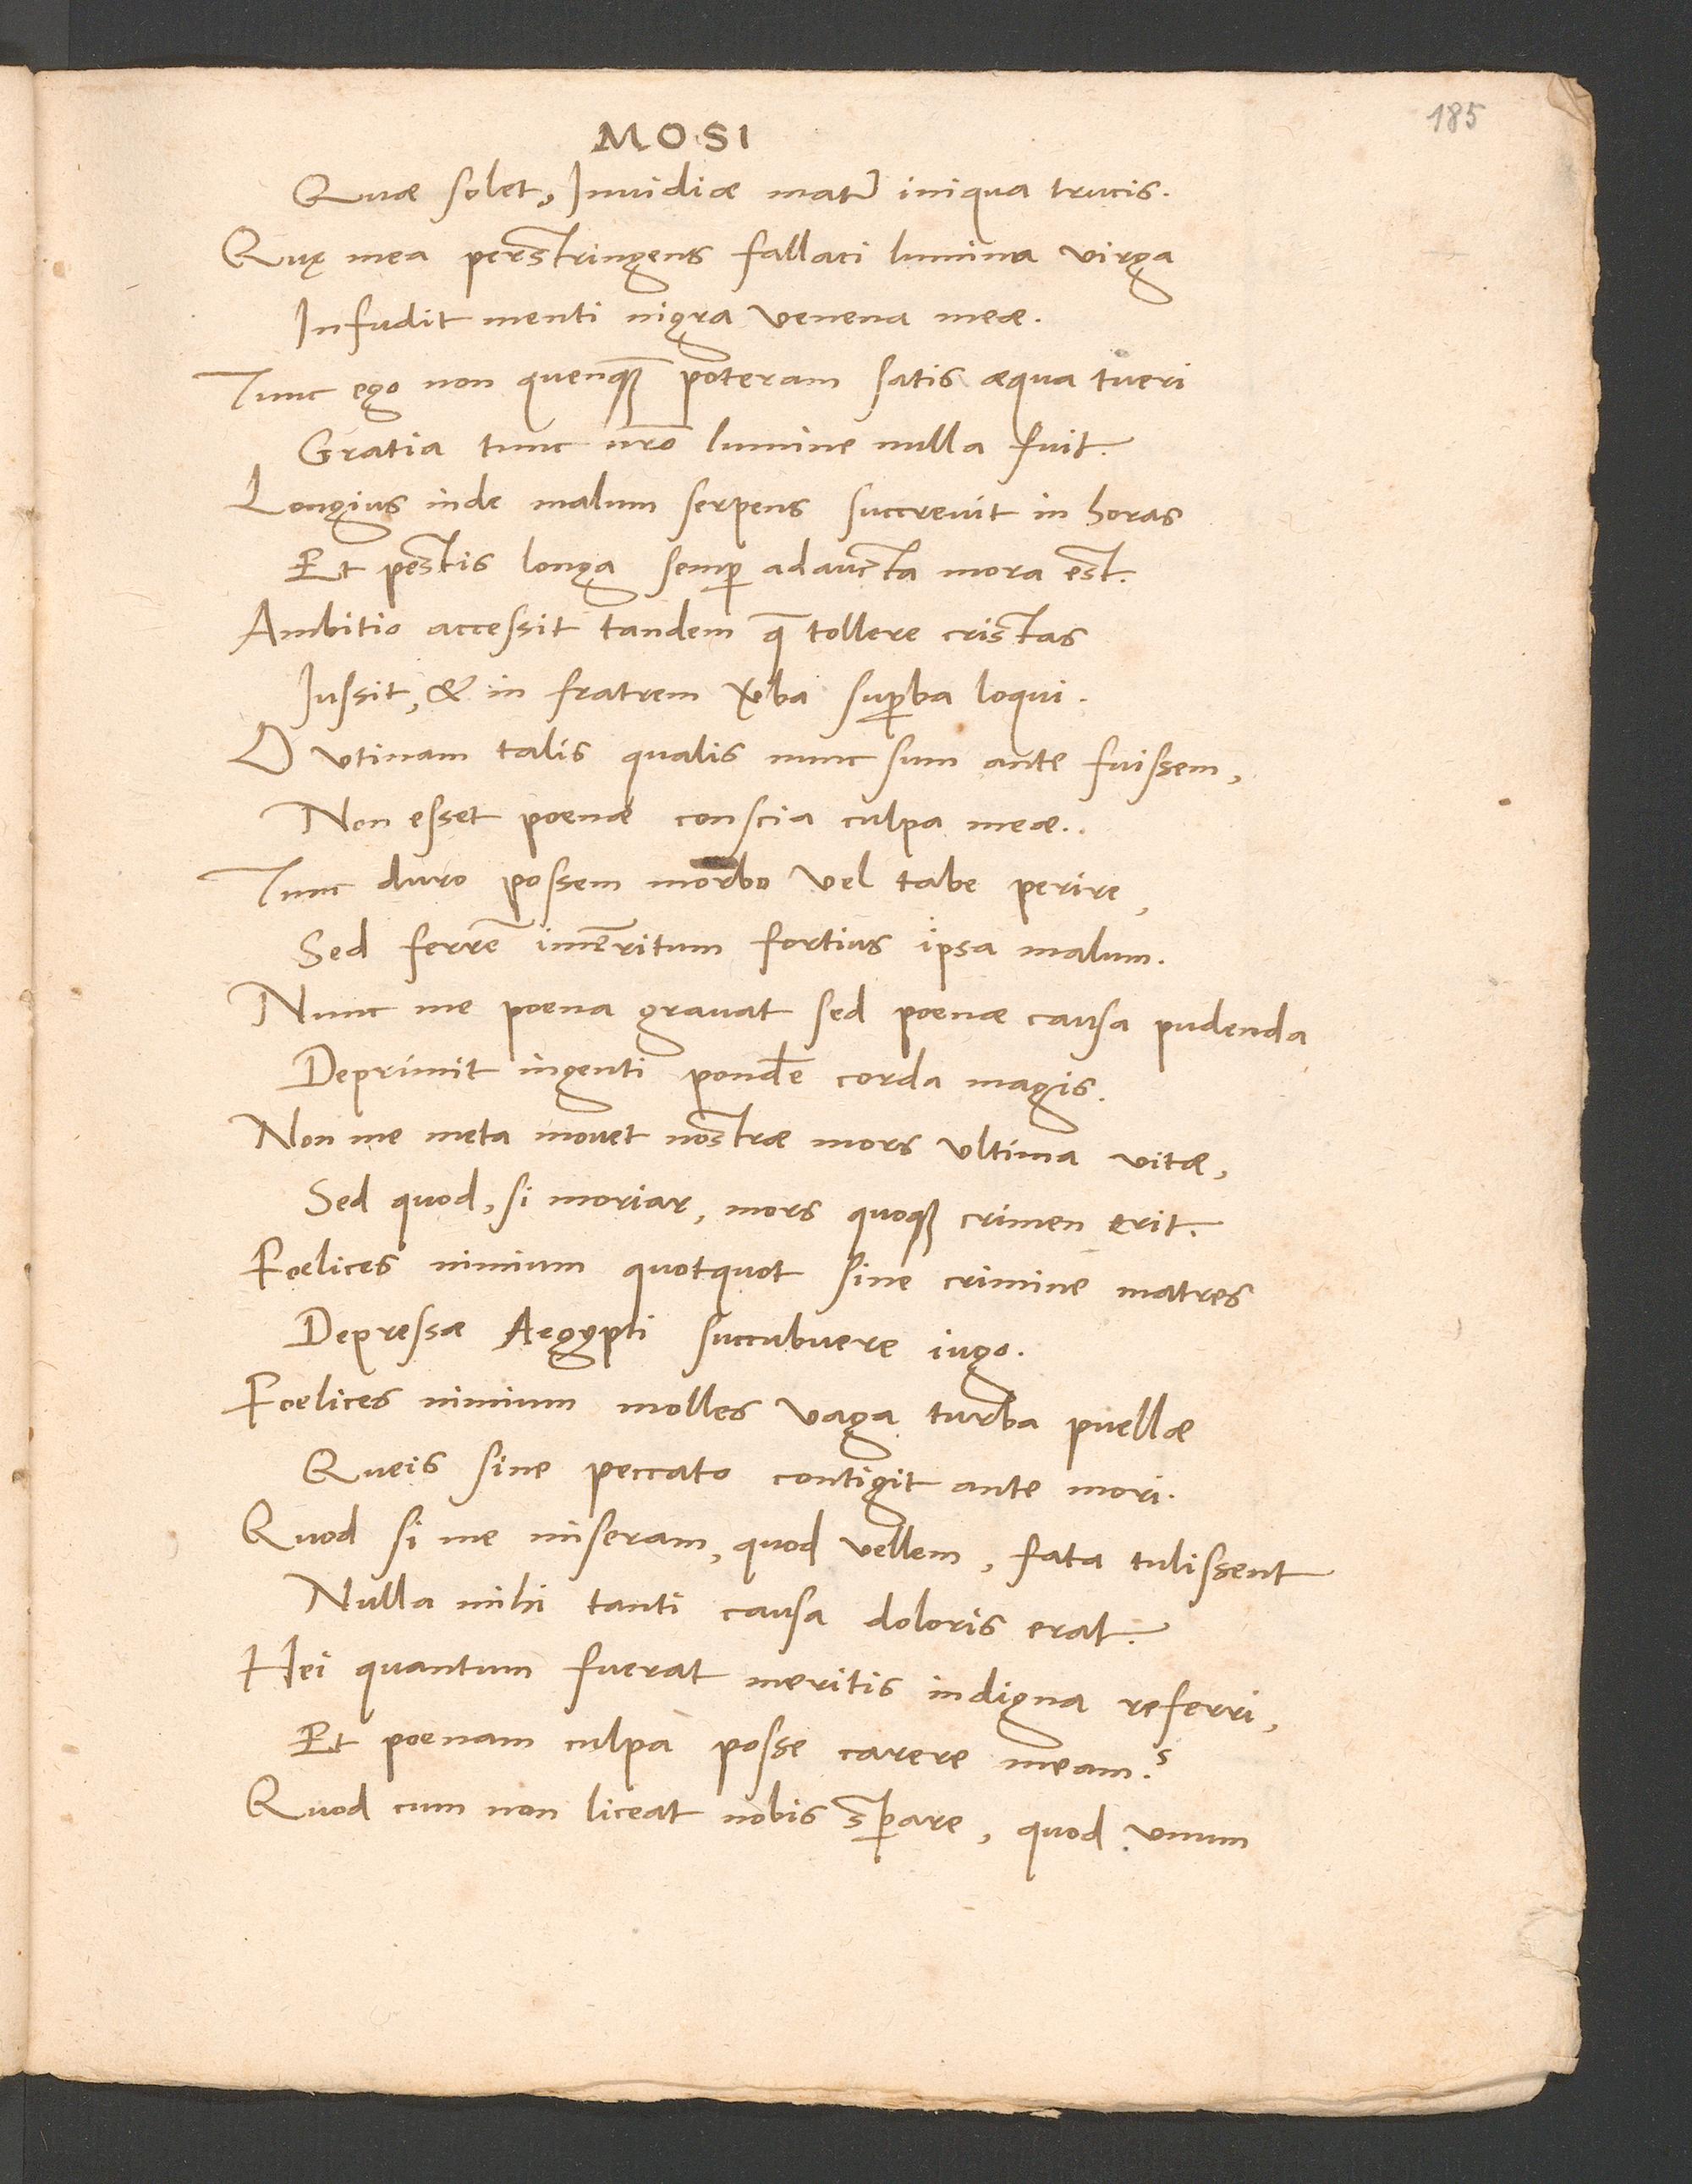 185
MOSI
Quæ solet, Inuidiæ mat͛ iniqua trucis.
Quę mea perstringens fallaci lumina virga
Infudit menti nigra venena meæ.
Tunc ego non quenq̃ꝫ poteram satis æqua tueri
Gratia tunc nr̃o lumine nulla fuit.
Longius inde malum serpens succreuit in horas
Et pestis longa semꝑ adaucta mora est.
Ambitio accessit tandem q̃ tollere cristas
Iussit, & in fratrem v̾ba suꝑba loqui.
O vtinam talis qualis nunc sum ante fuissem,
Non esset poenæ conscia culpa meæ..
Tunc duro possem morbo vel tabe perire,
Sed ferrē im̄eritum fortius ipsa malum.
Nunc me poena grauat sed poenæ causa pudenda
Deprimit ingenti pond̾e corda magis.
Non me meta mouet nostræ mors vltima vitæ,
Sed quod, si moriar, mors quoqꝫ crimen erit.
Foelices nimium quotquot sine crimine matres
Depressæ Aegypti succubuere iugo.
Foelices nimium molles vaga turba puellæ
Queis sine peccato contigit ante mori.
Quod si me miseram, quod vellem, fata tulissent
Nulla mihi tanti causa doloris erat.
Hei quantum fuerat meritis indigna referri,
Et poenam culpa posse carere meam?
Quod cum non liceat nobis sꝑare, quod vnum